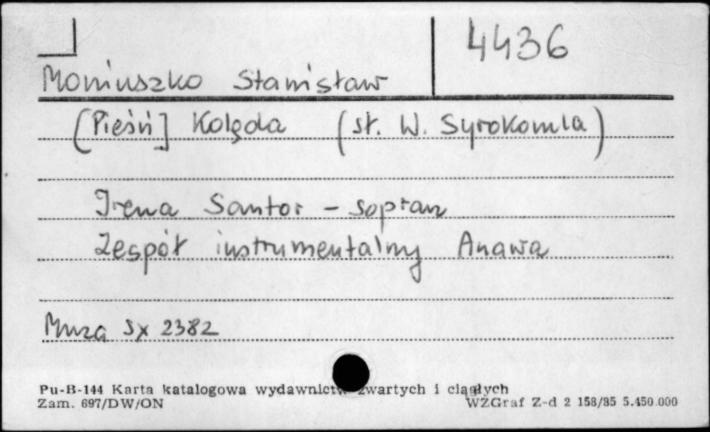 4436
Moniuszko Stanisław
[Pieśń] Kolęda (sł. W. Syrokomla)
Irena Santor - sopran
Zespół instrumentalny Anawa
Muza SX 2382
Pu-B-144 Karta katalogowa wydawnictw zwartych i ciągłych
Zam. 697/DW/ON WZGraf Z-d 2 158/85 5.450.000